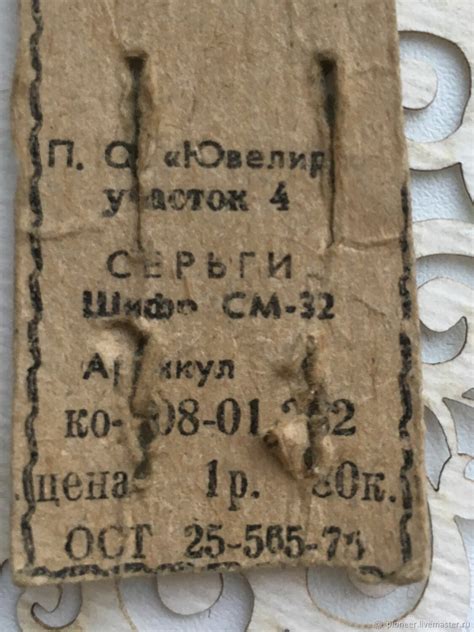 П. О. «Ювелир
участок 4
СЕРЬГИ
Шифр СМ-32
Артикул
ко- 08-01
цена 1р. 80к.
ОСТ 25-565-7
pioneer.livemaster.ru